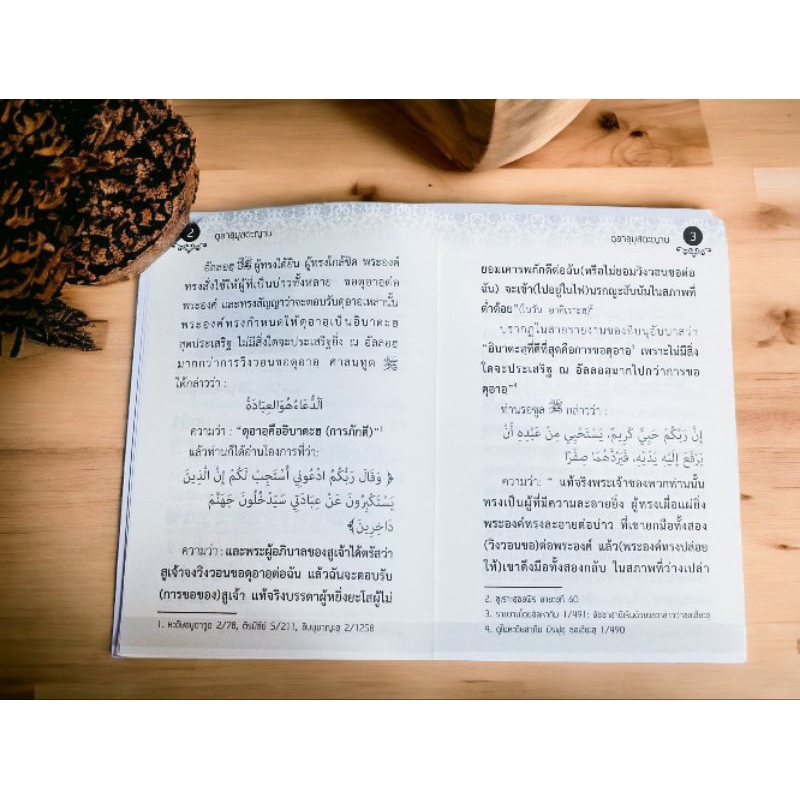 2 ดุอาอุมุสตะญาบ
อัลลอฮฺ ﷻ ผู้ทรงได้ยิน ผู้ทรงใกล้ชิด พระองค์
ทรงสั่งใช้ให้ผู้ที่เป็นบ่าวทั้งหลาย ขอดุอาอฺต่อ
พระองค์ และทรงสัญญาว่าจะตอบรับดุอาอฺเหล่านั้น
พระองค์ทรงกำหนดให้ดุอาอฺเป็นอิบาดะฮฺ
สุดประเสริฐ ไม่มีสิ่งใดจะประเสริฐยิ่ง ณ อัลลอฮฺ
มากกว่าการวิงวอนขอดุอาอฺ ศาสนทูต ﷺ
ได้กล่าวว่า :
اَلدُّعَاءُ هُوَ الْعِبَادَةُ
ความว่า : "ดุอาอฺคืออิบาดะฮฺ (การภักดี)"¹
แล้วท่านก็ได้อ่านโองการที่ว่า:
﴿ وَقَالَ رَبُّكُمُ ادْعُونِي أَسْتَجِبْ لَكُمْ إِنَّ الَّذِينَ
يَسْتَكْبِرُونَ عَنْ عِبَادَتِي سَيَدْخُلُونَ جَهَنَّمَ
دَاخِرِينَ﴾
ความว่า : และพระผู้อภิบาลของสูเจ้าได้ตรัสว่า
สูเจ้าจงวิงวอนขอดุอาอฺต่อฉัน แล้วฉันจะตอบรับ
(การขอของ)สูเจ้า แท้จริงบรรดาผู้หยิ่งยะโสผู้ไม่
1. หะดีษอบูดาวูด 2/78, ติรมีซีย์ 5/211, อิบนุมาญะฮฺ 2/1258
ดุอาอุมุสตะญาบ 3
ยอมเคารพภักดีต่อฉัน(หรือไม่ยอมวิงวอนขอต่อ
ฉัน) จะเข้า(ไปอยู่ในไฟ)นรกญะฮันนัมในสภาพที่
ต่ำต้อย"
ปรากฏในสายรายงานของอิบนุอับบาสว่า
"อิบาดะฮฺที่ดีที่สุดคือการขอดุอาอฺ³ เพราะไม่มีสิ่ง
ใดจะประเสริฐ ณ อัลลอฮฺมากไปกว่าการขอ
ดุอาอฺ"⁴
ท่านรอซูล ﷺ กล่าวว่า :
إِنَّ رَبَّكُمْ حَيِيٌّ كَرِيمٌ، يَسْتَحْيِي مِنْ عَبْدِهِ أَنْ
يَرْفَعَ إِلَيْهِ يَدَيْهِ، فَيَرُدَّهُمَا صِفْرًا
ความว่า: " แท้จริงพระเจ้าของพวกท่านนั้น
ทรงเป็นผู้ที่มีความละอายยิ่ง ผู้ทรงเผื่อแผ่ยิ่ง
พระองค์ทรงละอายต่อบ่าว ที่เขายกมือทั้งสอง
(วิงวอนขอ)ต่อพระองค์ แล้ว(พระองค์ทรงปล่อย
ให้)เขาดึงมือทั้งสองกลับ ในสภาพที่ว่างเปล่า
2. อายะฮฺที่ 60
3. รายงานโดยอัลหากิม 1/491:
4. 1/490